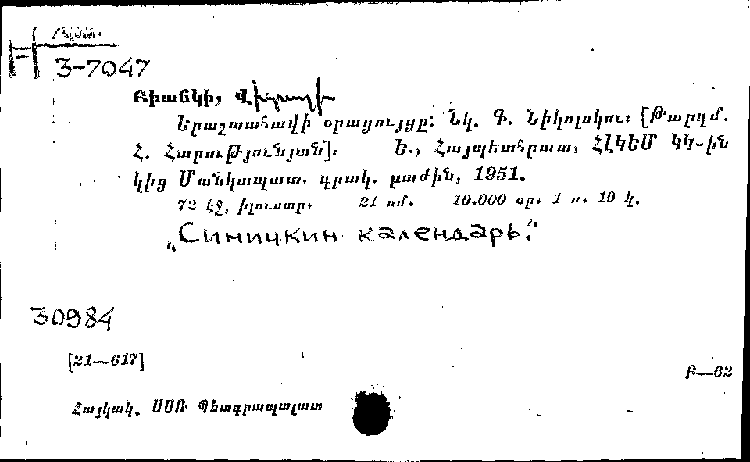 Н
З-7047
Բիանկի, Վիտալի
Երաշտահավի օրացույցը: Նկ. Գ. Նիկոլսկու: [Թարգմ.
Հ. Հարութjունյան]: Ե., Հայպետհրատ, ՀԼԿԵՄ ԿԿ-ին
կից Մանկապատ. գրակ. բաժին, 1951.
72 էջ, իլյուստր. 21 սմ. 10.000 օր. 1 ռ. 10 կ.
„Синичкин календарь."
30984
[21—617]
Բ—82
Հայկակ. ՍՍՌ Պետգրապալատ